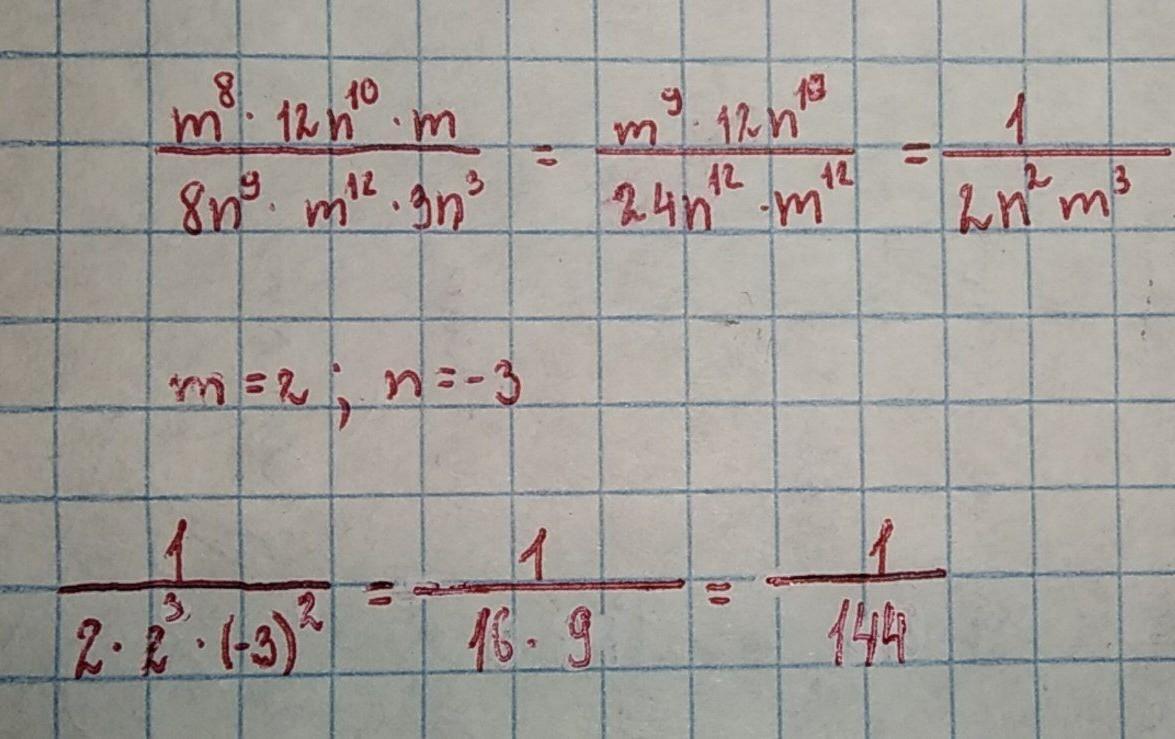 m⁸ · 12n¹⁰ · m / 8n⁹ · m¹² · 3n³ = m⁹ · 12n¹⁰ / 24n¹² · m¹² = 1 / 2n²m³
m = 2 ; n = -3
1 / 2 · 2³ · (-3)² = 1 / 16 · 9 = 1 / 144